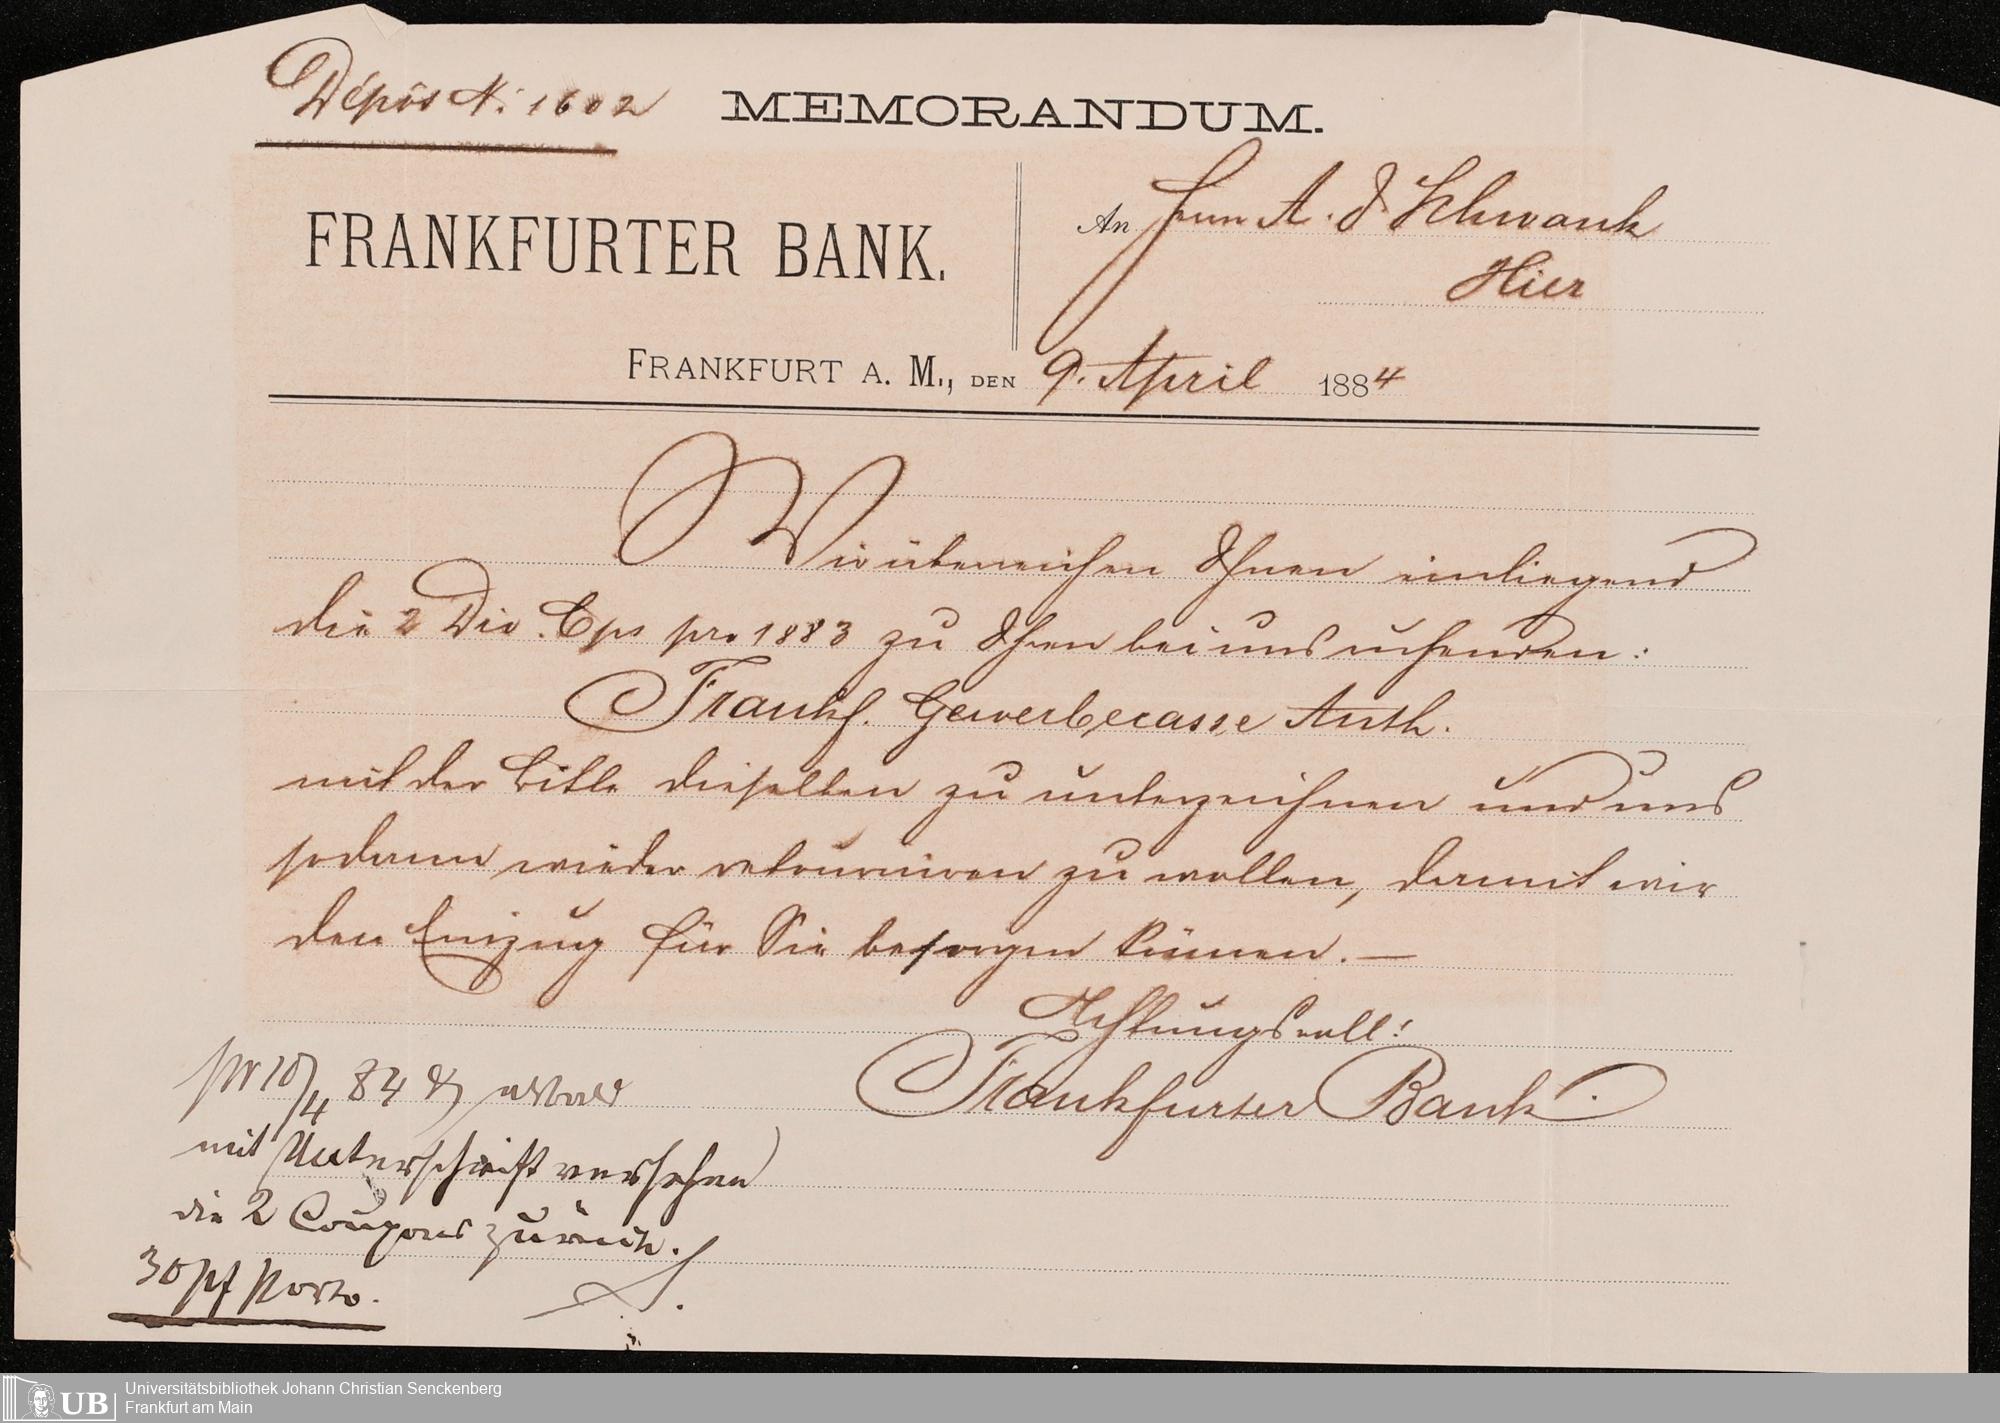 Dépôs N. 1602
MEMORANDUM.
FRANKFURTER BANK.
An Herrn A. J. Schwank
Hier
FRANKFURT A. M., DEN 9. April 1884
Wir überreichen Ihnen einliegend
die 2 Div. Cps pro 1883 zu Ihren bei uns ruhenden:
Frankf. Gewerbecasse Anth.
mit der Bitte dieselben zu unterzeichnen und uns
sodann wieder retourniren zu wollen, damit wir
den Einzug für Sie besorgen können. —
Achtungsvoll!
Frankfurter Bank.
pr 10/4 84
mit Unterschrift versehen
die 2 Coupons zurück.
30 pf Porto.
UB
Universitätsbibliothek Johann Christian Senckenberg
Frankfurt am Main